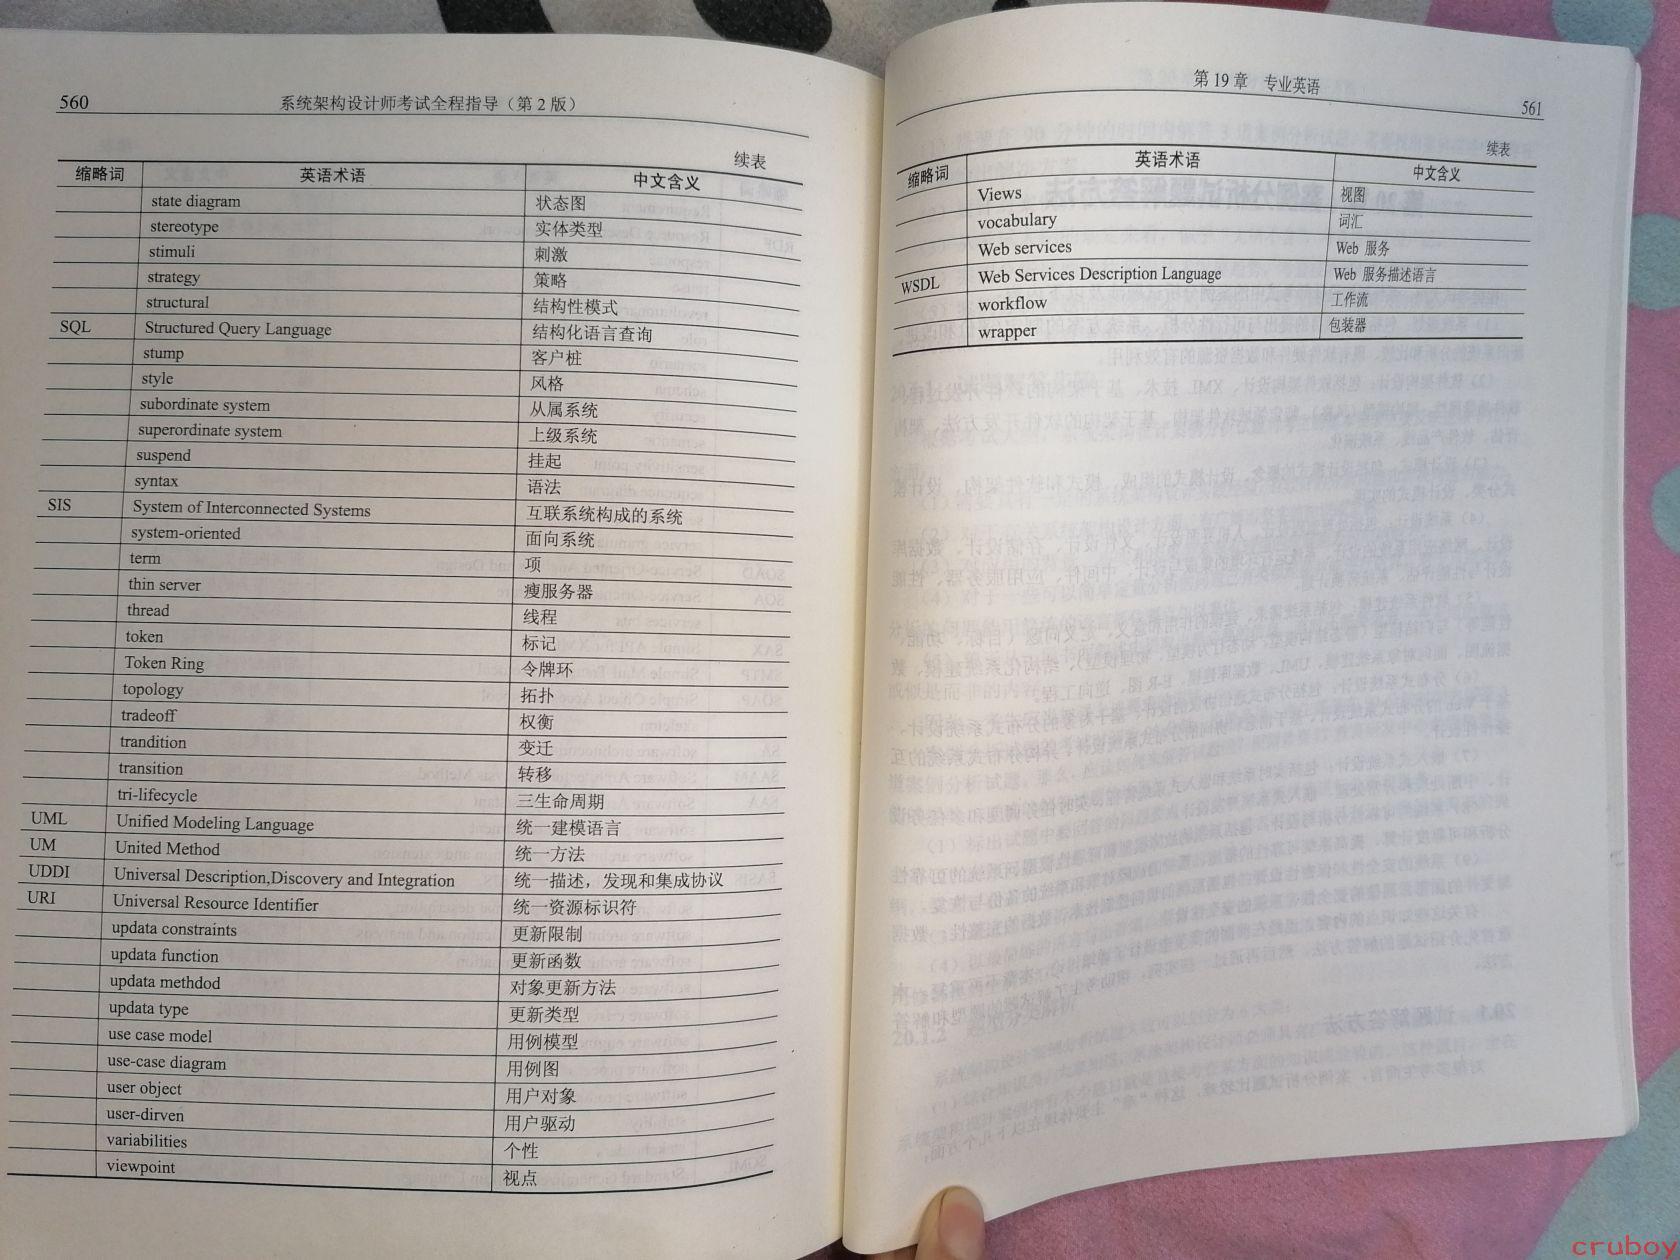 560 系统架构设计师考试全程指导（第 2 版）
续表
缩略词 英语术语 中文含义
state diagram 状态图
stereotype 实体类型
stimuli 刺激
strategy 策略
structural 结构性模式
SQL Structured Query Language 结构化语言查询
stump 客户桩
style 风格
subordinate system 从属系统
superordinate system 上级系统
suspend 挂起
syntax 语法
SIS System of Interconnected Systems 互联系统构成的系统
system-oriented 面向系统
term 项
thin server 瘦服务器
thread 线程
token 标记
Token Ring 令牌环
topology 拓扑
tradeoff 权衡
trandition 变迁
transition 转移
tri-lifecycle 三生命周期
UML Unified Modeling Language 统一建模语言
UM United Method 统一方法
UDDI Universal Description,Discovery and Integration 统一描述，发现和集成协议
URI Universal Resource Identifier 统一资源标识符
updata constraints 更新限制
updata function 更新函数
updata methdod 对象更新方法
updata type 更新类型
use case model 用例模型
use-case diagram 用例图
user object 用户对象
user-dirven 用户驱动
variabilities 个性
viewpoint 视点
第 19 章 专业英语 561
续表
缩略词 英语术语 中文含义
Views 视图
vocabulary 词汇
Web services Web 服务
WSDL Web Services Description Language Web 服务描述语言
workflow 工作流
wrapper 包装器
cruboy